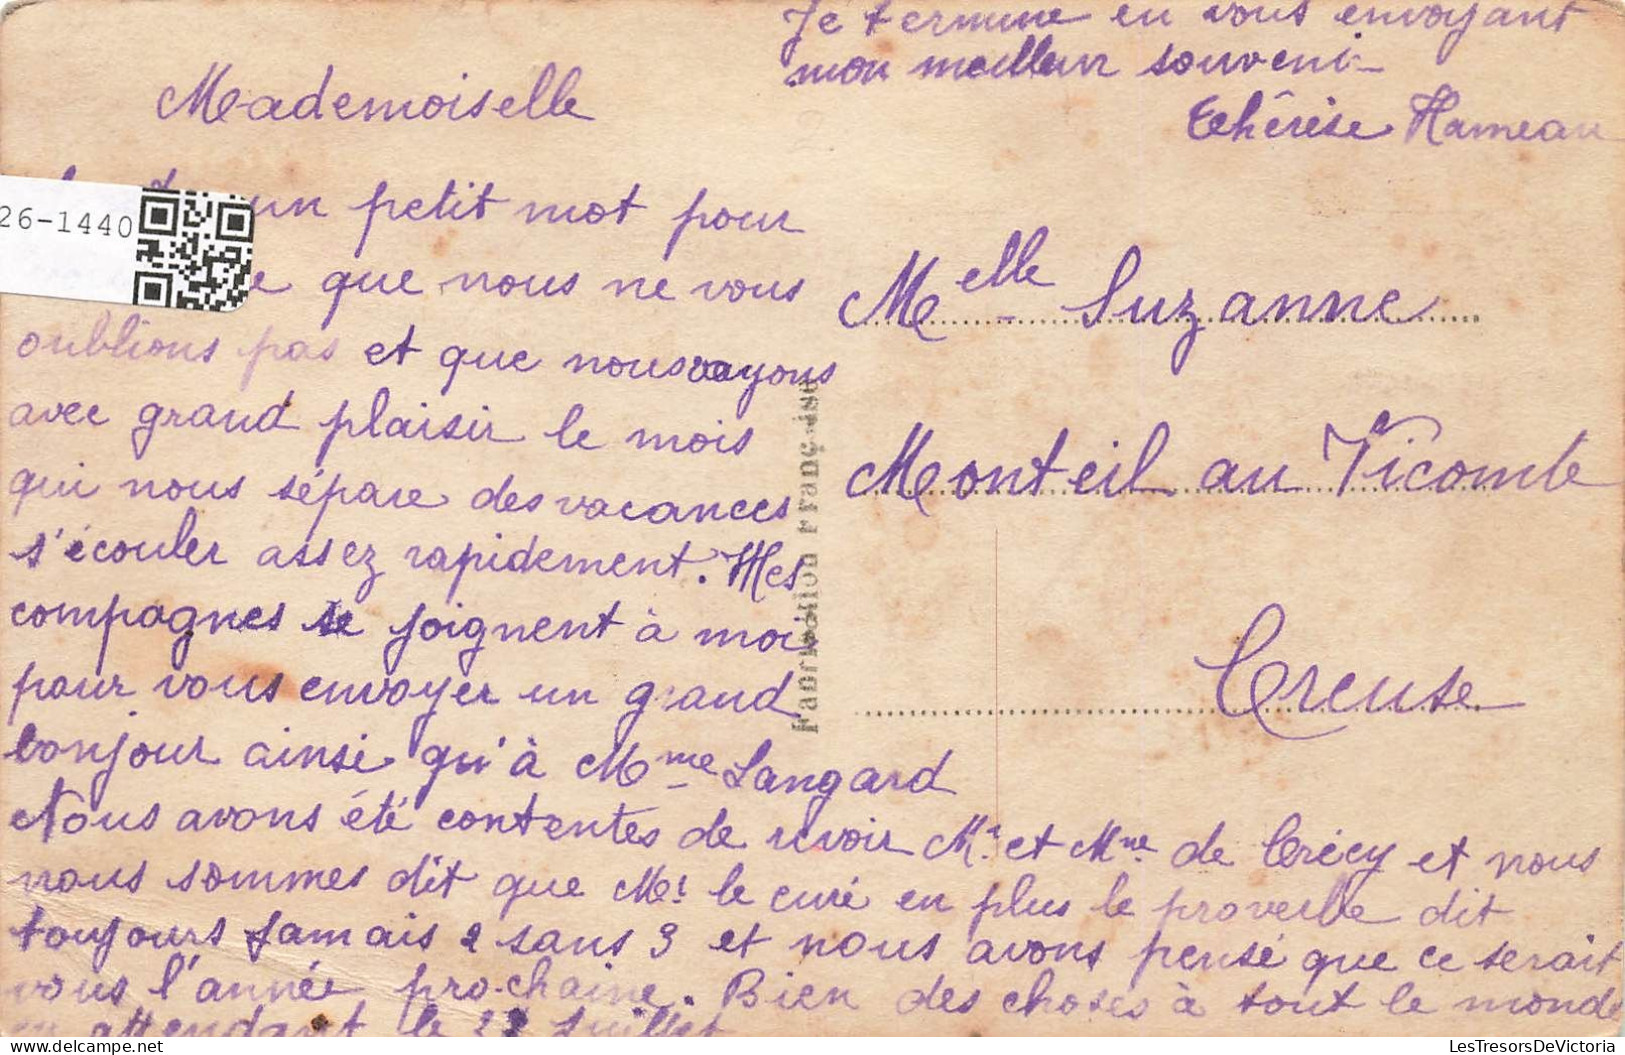 Je termine en vous envoyant
mon meilleur souveni
Thérèse Hameau
Mademoiselle
un petit mot pour
que nous ne vous
oublions pas et que nous voyons
avec grand plaisir le mois
qui nous sépare des vacances
s'écouler assez rapidement. Mes
compagnes se joignent à moi
pour vous envoyer un grand
bonjour ainsi qu'à Mme Langard
Nous avons été contentes de revoir Mr. et Mme. de Crécy et nous
nous sommes dit que Mr. le curé en plus le proverbe dit
toujours jamais 2 sans 3 et nous avons pensé que ce serait
vous l'année prochaine. Bien des choses à tout le monde
en attendant le Juillet
Melle Suzanne
Monteil au Vicomte
Creuse
Fabrication Française
26-1440
LesTresorsDeVictoria